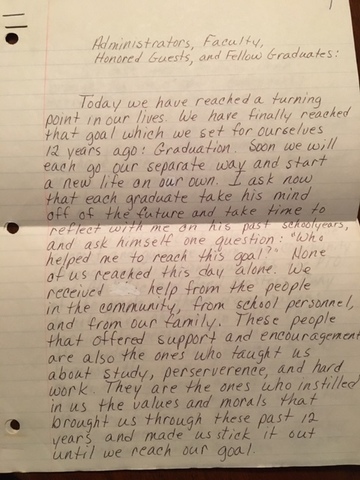 Administrators, Faculty,
Honored Guests, and Fellow Graduates:
Today we have reached a turning
point in our lives. We have finally reached
that goal which we set for ourselves
12 years ago: Graduation. Soon we will
each go our separate way and start
a new life on our own. I ask now
that each graduate take his mind
off of the future and take time to
reflect with me on his past schoolyears,
and ask himself one question: "Who
helped me to reach this goal?" None
of us reached this day alone. We
received help from the people
in the community, from school personnel,
and from our family. These people
that offered support and encouragement
are also the ones who taught us
about study, perserverence, and hard
work. They are the ones who instilled
in us the values and morals that
brought us through these past 12
years and made us stick it out
until we reach our goal.